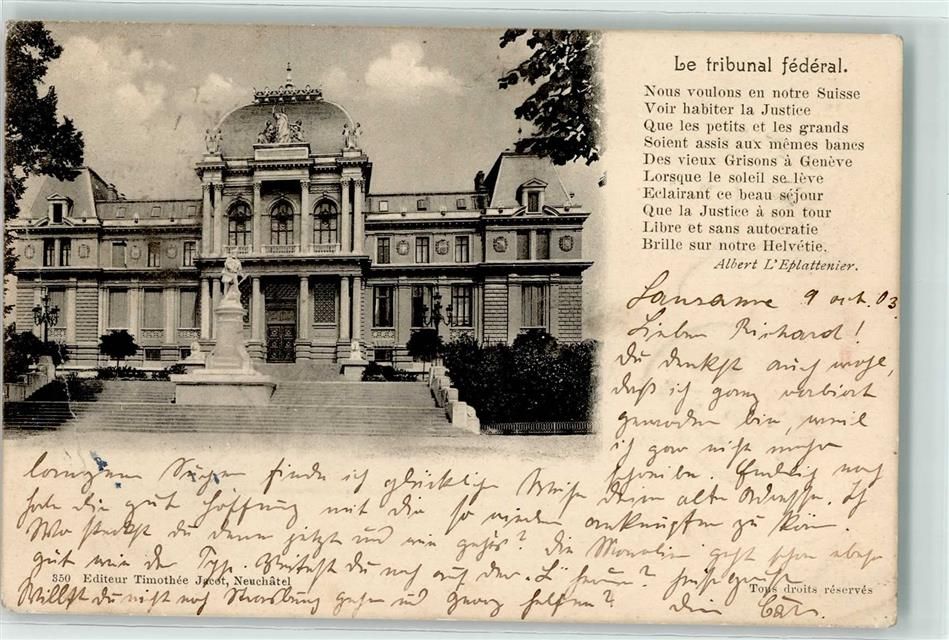 Le tribunal fédéral.
Nous voulons en notre Suisse
Voir habiter la Justice
Que les petits et les grands
Soient assis aux mêmes bancs
Des vieux Grisons à Genève
Lorsque le soleil se lève
Eclairant ce beau séjour
Que la Justice à son tour
Libre et sans autocratie
Brille sur notre Helvétie.
Albert L'Eplattenier.
Lausanne 9 oct. 03.
Lieber Richard!
Du denkst auch wohl,
daß ich ganz
geworden bin, weil
ich gar nicht mehr
schreibe. Endlich nach
langem Suchen finde ich glücklicher Weise deine alte Adresse. Ich
habe die gute Hoffnung mit dir so wieder anknüpfen zu können.
Wo steckst du denn jetzt und wie gehts? Die
gut wie der 350 Editeur Timothée Jacot, Neuchâtel
Tous droits réservés
Willst du nicht nach Strassburg gehen und Georg helfen? dein